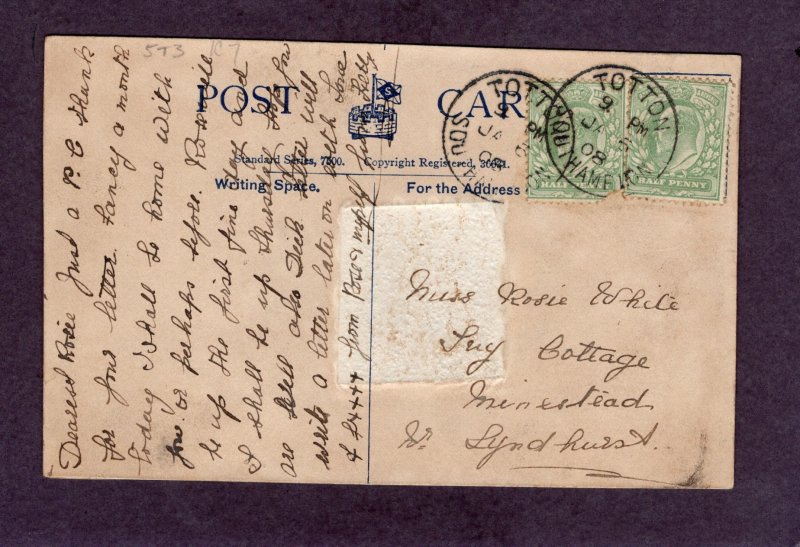 573 K7
POST CARD
S
Standard Series, 7500. Copyright Registered,
Writing Space. For the Address
TOTTON
9 PM
JA
08
SOUTHAMPTON
TOTTON
9 PM
JA
08
SOUTHAMPTON
HALF PENNY
HALF PENNY
Dearest Rosie Just a P.C thank
for your letter Fancy a month
today I shall be home with
you. or perhaps before. Rose will
be up the first fine day and
I shall be up Thursday Hope you
are well also Dick &amp; Will
write a letter later on with love
&amp; xxxxx from Rose &amp; myself
Miss Rosie White
Ivy Cottage
Minestead
Nr Lyndhurst.